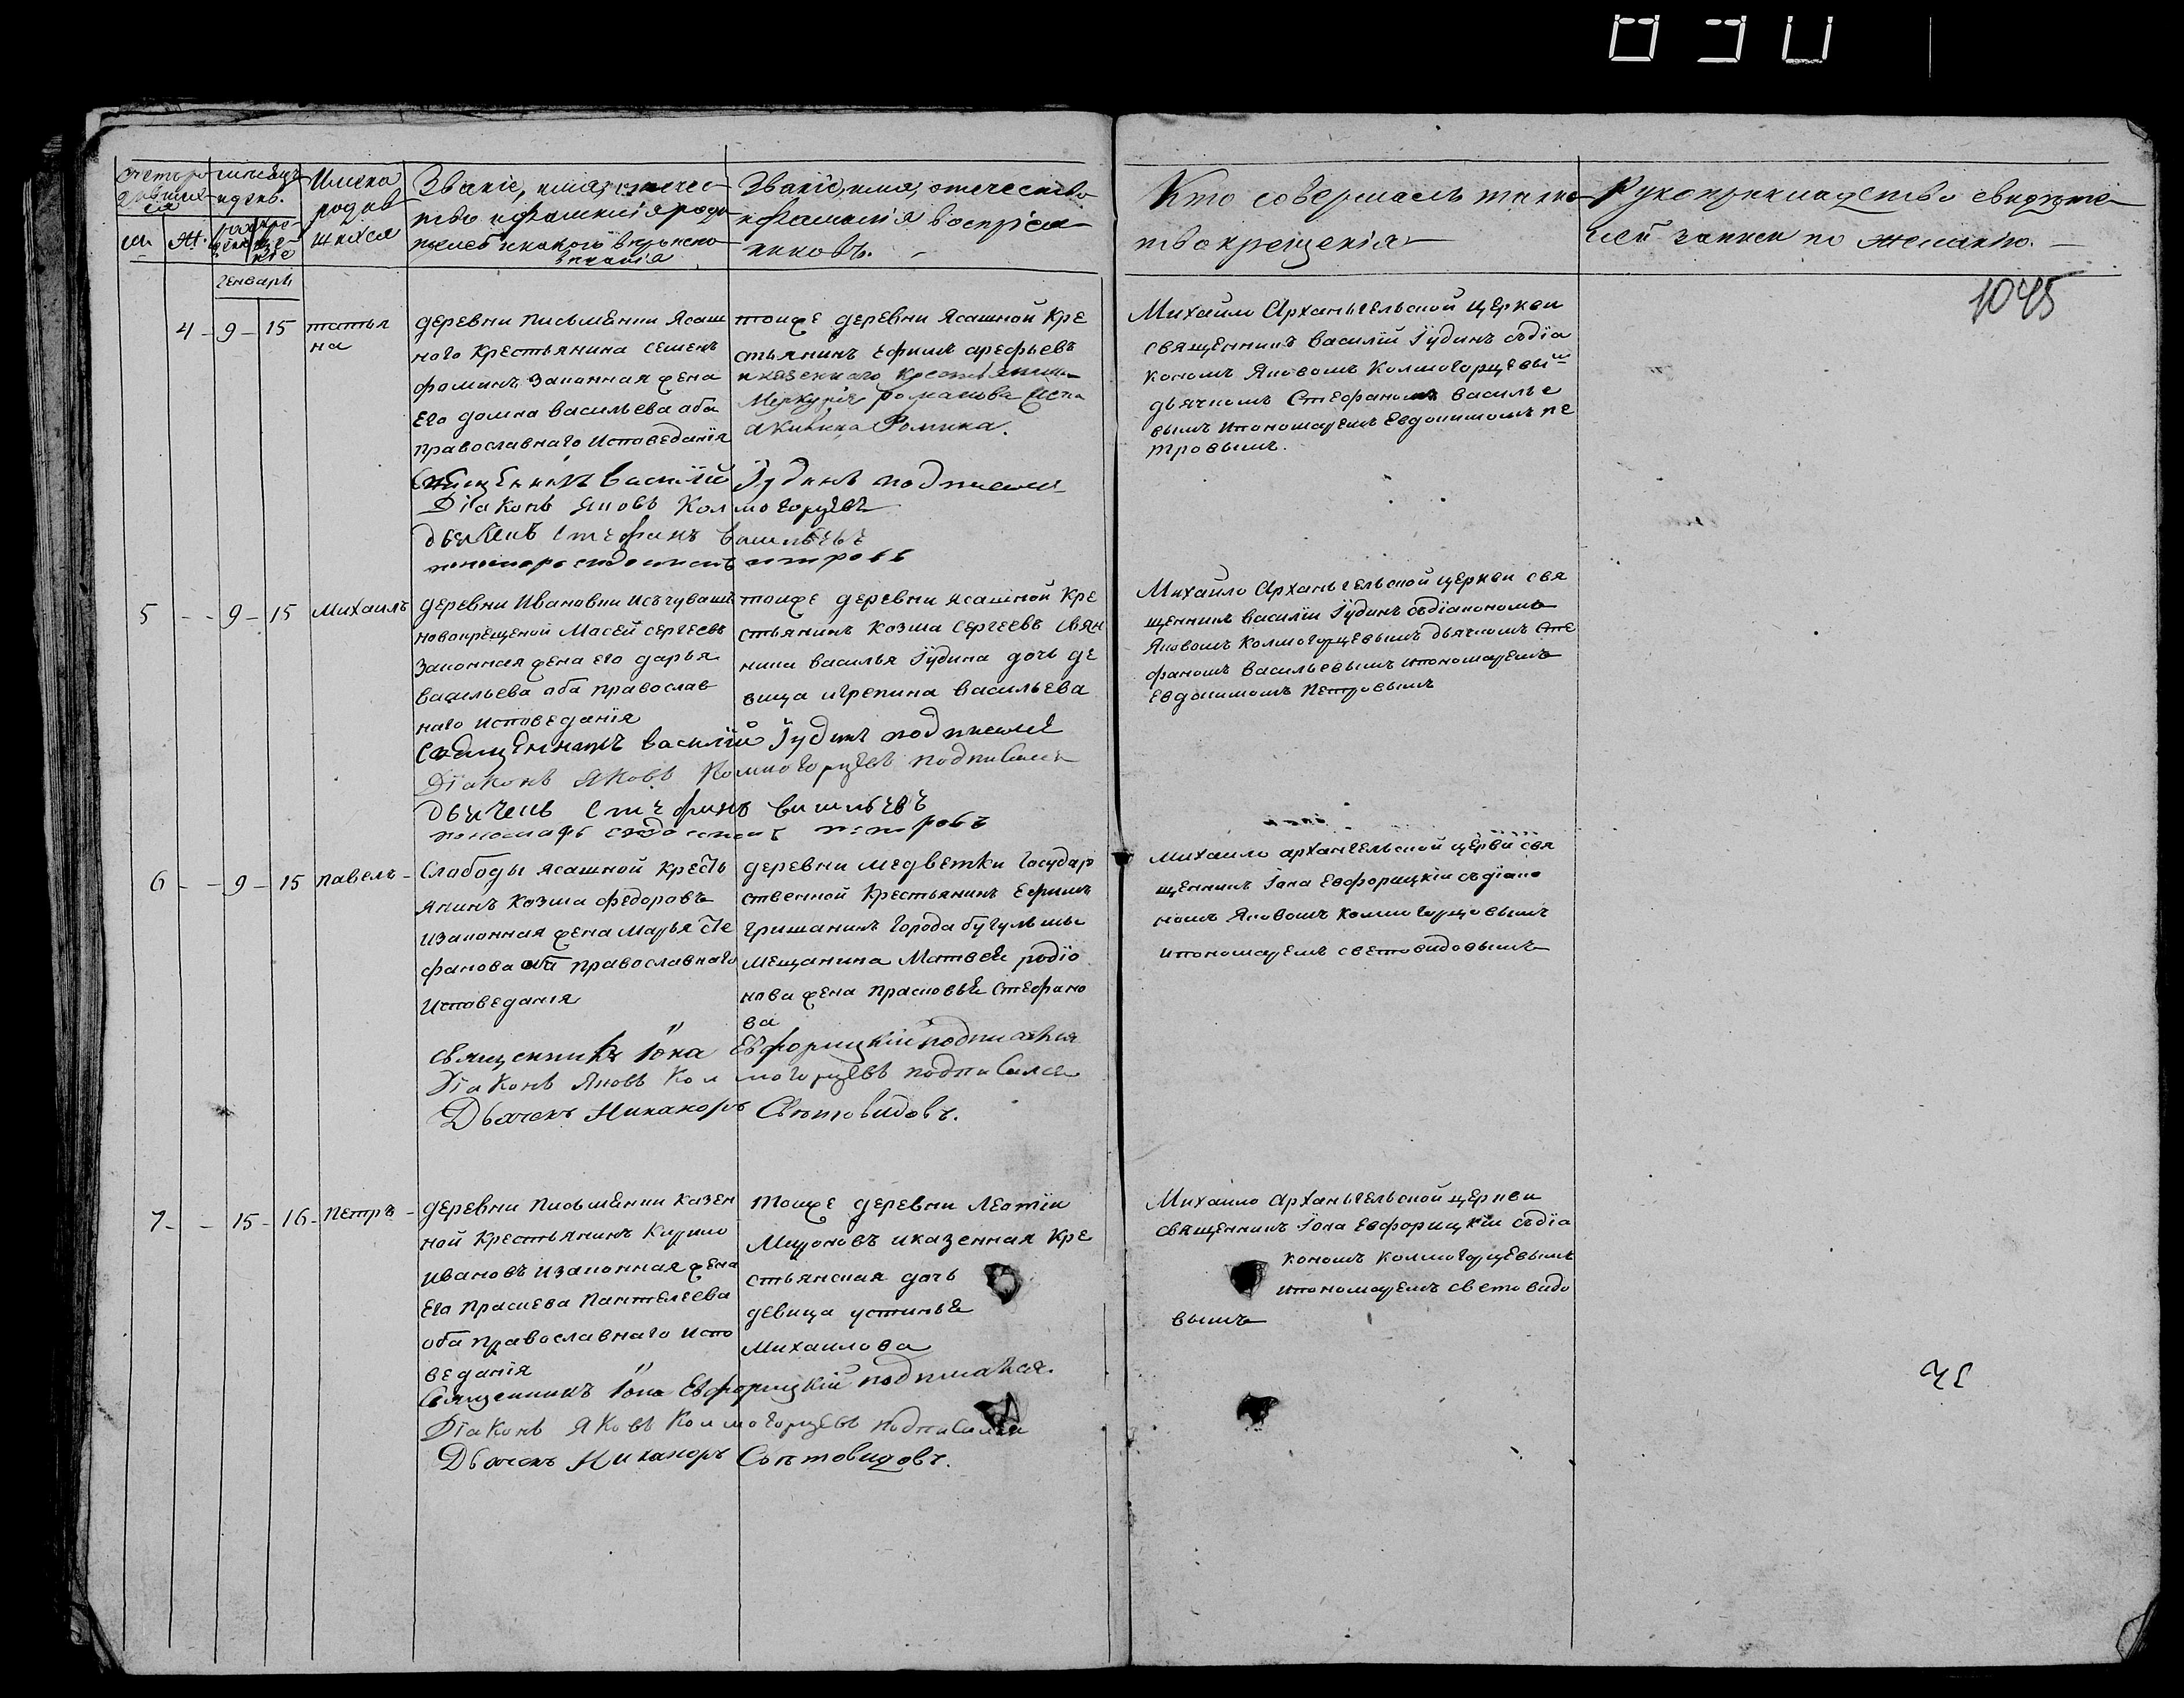 Счетъ ро
дивших
ся
месяцъ
и день.
м.
ж.
рож
дения
кре
ще
ние
Имена
родив
шихся
Званіе, имя, отечес
тво и фамилія роди
телей и какого вероиспо
веданія
Званіе, имя, отечество
и фамилія воспріем
никовъ.
Кто совершалъ таинс
тво крещенія
Рукоприкладство свидете
лей записи по желанію.
Генварь
1045
4 - 9 - 15
татья
на
деревни Письмянки Ясаш
ного Крестьянина Семенъ
Фоминъ Законная жена
Его домна васильева аба
православнаго Исповеданія
тоиже деревни Ясашной Кре
стьянинъ Ефимъ арефьевъ
и казеннаго крестьянина
Меркурія романова жена
акилина Фомина.
Михаило Арханьгельской Церкви
священникъ василій Іудинъ съдіа
кономъ Яковомъ Колмогорцевы
дьячкомъ Стефаномъ василье
вымъ ипономаремъ Евдокимомъ пе
тровымъ.
Священникъ василій Іудинъ подписалъ
Діаконъ Яковъ Колмогорцевъ
дьячекъ Стефанъ васильевъ
пономарь евдокимъ петровъ
5 - - 9 - 15
Михаилъ
деревни Ивановки Исъчувашъ
новокрещеной Масей сергеевъ
Законная жена его дарья
васильева оба православ
наго исповеданія
тоиже деревни ясашной Кре
стьянинъ Козма Сергеевъ свян
ника василья Іудина дочь де
вица игрепина васильева
Михаило Арханьгельской церкви свя
щенникъ василій Іудинъ съдіакономъ
Яковомъ Колмогорцевымъ дьячкомъ Сте
фаномъ васильевымъ ипономаремъ
Евдокимомъ Петровымъ
Священникъ василій Іудинъ подписалъ
Діаконъ Яковъ Колмогорцевъ подписался
дьячекъ Стефанъ васильевъ
пономарь евдокимъ петровъ
6 - - 9 - 15
павелъ -
Слабоды ясашной кресть
янинъ Козма федоровъ
изаконная жена Марья Сте
фанова оба православнаго
Исповеданія
деревни медветки Государ
ственной Крестьянинъ Ефимъ
гришанинъ Города бугульмы
мещанина Матвея родіо
нова жена прасковья Стефано
ва
Михаило архангельской церкви свя
щенникъ Іона Евфорицкіи съдіако
номъ Яковомъ Колмогорцовымъ
ипономаремъ световидовымъ
священникъ Іона Евфорицкій подписался
Діаконъ Яковъ Колмогорцевъ подписался
Дьячекъ Никаноръ Свѣтовидовъ.
7 - - 15 - 16 -
Петръ -
деревни Письмянки казен
ной Крестьянинъ Кирило
ивановъ изаконная жена
Его Прасиева Пантелеева
оба православнаго испо
веданія
Тоиже деревни Леотіи
Мироновъ иказенная кре
стьянская дочь
девица устинья
Михаилова
Михаило арханьгельской церкви
священникъ Іона Евфорицкіи съдіа
кономъ колмогорцевымъ
ипономаремъ световидо
вымъ
Священникъ Іона Евфорицкій подписался.
Діаконъ Яковъ Колмогорцевъ подписался
Дьячекъ Никаноръ Свѣтовидовъ.